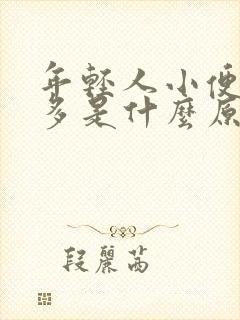 年輕人小便
多是什麼原
段麗茜